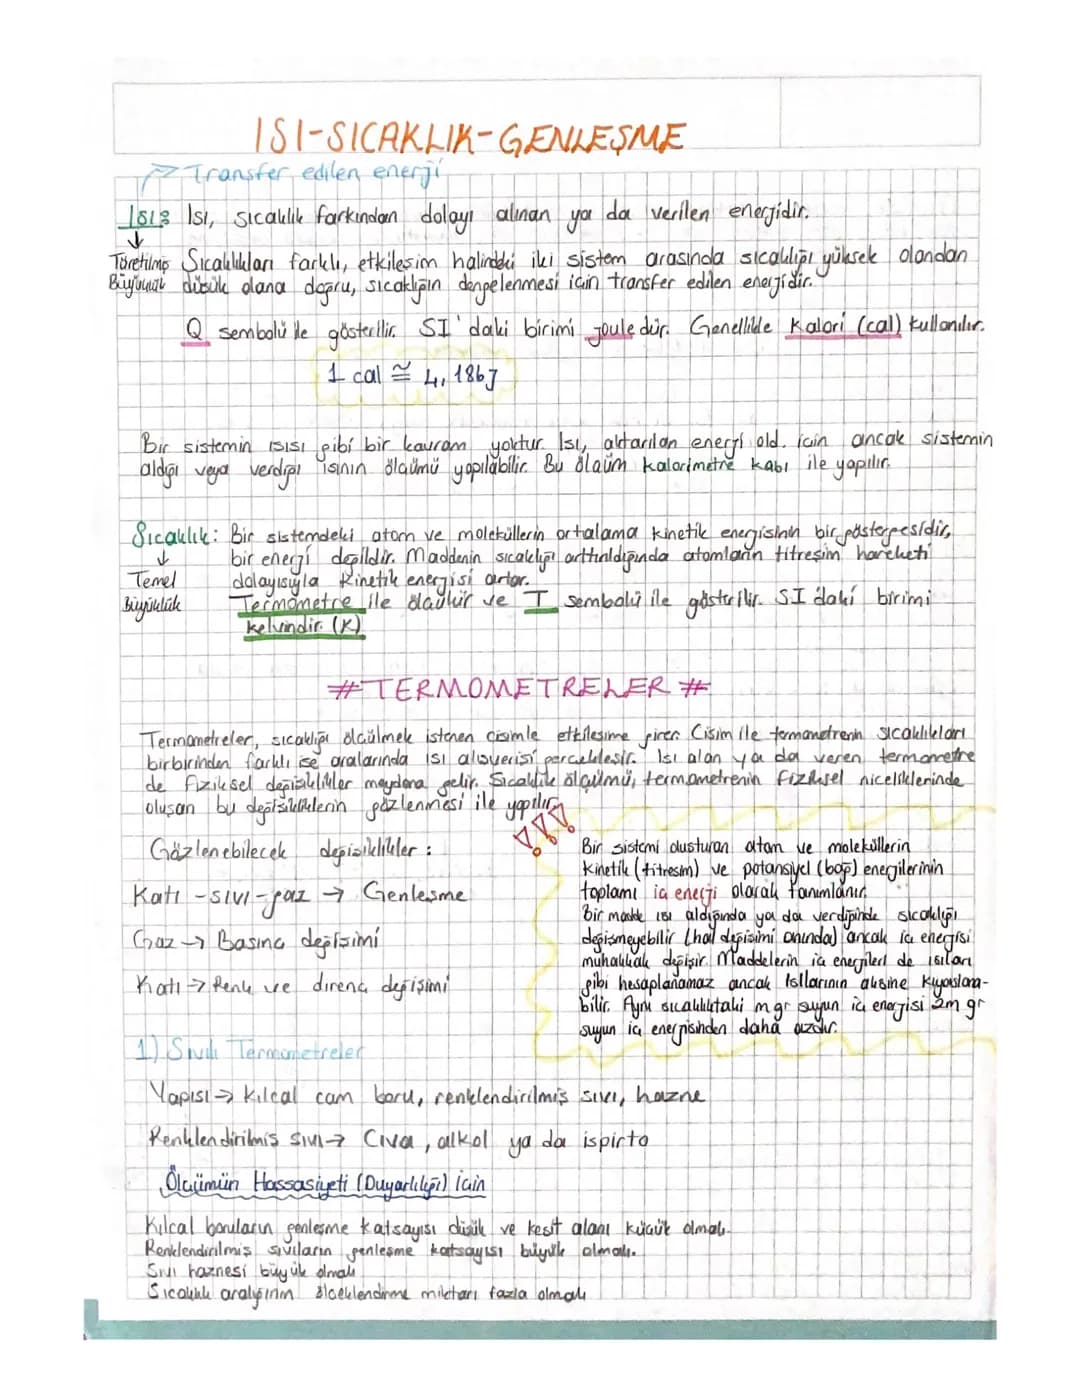 ISI-SICAKLIK-GENLEŞME
Transfer edilen enerji
Isı: Isı, sıcaklık farkından dolayı alınan ya da verilen enerjidir.
Türetilmiş Sıcaklıkları farklı, etkileşim halindeki iki sistem arasında sıcaklığı yüksek olandan
Büyüklük düşük olana doğru, sıcaklığın dengelenmesi için transfer edilen enerjidir.
Q sembolü ile gösterilir. SI'daki birimi joule dür. Genellikle Kalori (cal) kullanılır.
1 cal ≅ 4,186J
Bir sistemin ısısı gibi bir kavram yoktur. Isı, aktarılan enerji old. için ancak sistemin
aldığı veya verdiği ısının ölçümü yapılabilir. Bu ölçüm kalorimetre kabı ile yapılır.
Sıcaklık: Bir sistemdeki atom ve moleküllerin ortalama kinetik enerjisinin bir göstergesidir,
bir enerji değildir. Maddenin sıcaklığı arttırıldığında atomların titreşim hareketi
Temel dolayısıyla kinetik enerjisi artar.
Büyüklük Termometre ile ölçülür ve T sembolü ile gösterilir. SI daki birimi
kelvindir. (K)
#TERMOMETRELER#
Termometreler, sıcaklığı ölçülmek istenen cisimle etkileşime girer. Cisim ile termometrenin sıcaklıkları
birbirinden farklı ise aralarında ısı alışverişi gerçekleşir. Isı alan ya da veren termometre
de fiziksel değişiklikler meydana gelir. Sıcaklık ölçümü, termometrenin fiziksel niceliklerinde
oluşan bu değişikliklerin gözlenmesi ile yapılır.
!!!
Gözlenebilecek değişiklikler :
Katı -sıvı-gaz → Genleşme
Gaz → Basınç değişimi
Katı → Renk ve direnç değişimi
Bir sistemi oluşturan atom ve moleküllerin
kinetik (titreşim) ve potansiyel (bağ) enerjilerinin
toplamı iç enerji olarak tanımlanır.
Bir madde ısı aldığında ya da verdiğinde sıcaklığı
değişmeyebilir (hal değişimi anında) ancak iç enerjisi
muhakkak değişir. Maddelerin iç enerjileri de ısıları
gibi hesaplanamaz ancak ısıların aksine kıyaslana-
bilir. Aynı sıcaklıktaki m gr suyun iç enerjisi 2m gr
suyun iç enerjisinden daha azdır.
1) Sıvılı Termometreler
Yapısı → kılcal cam boru, renklendirilmiş sıvı, hazne
Renklendirilmiş sıvı → Cıva, alkol ya da ispirto
Ölçümün Hassasiyeti (Duyarlılığı) İçin
Kılcal boruların genleşme katsayısı düşük ve kesit alanı küçük olmalı.
Renklendirilmiş sıvıların genleşme katsayısı büyük olmalı.
Sıvı haznesi büyük olmalı
Sıcaklık aralığının ölçeklendirme miktarı fazla olmalı